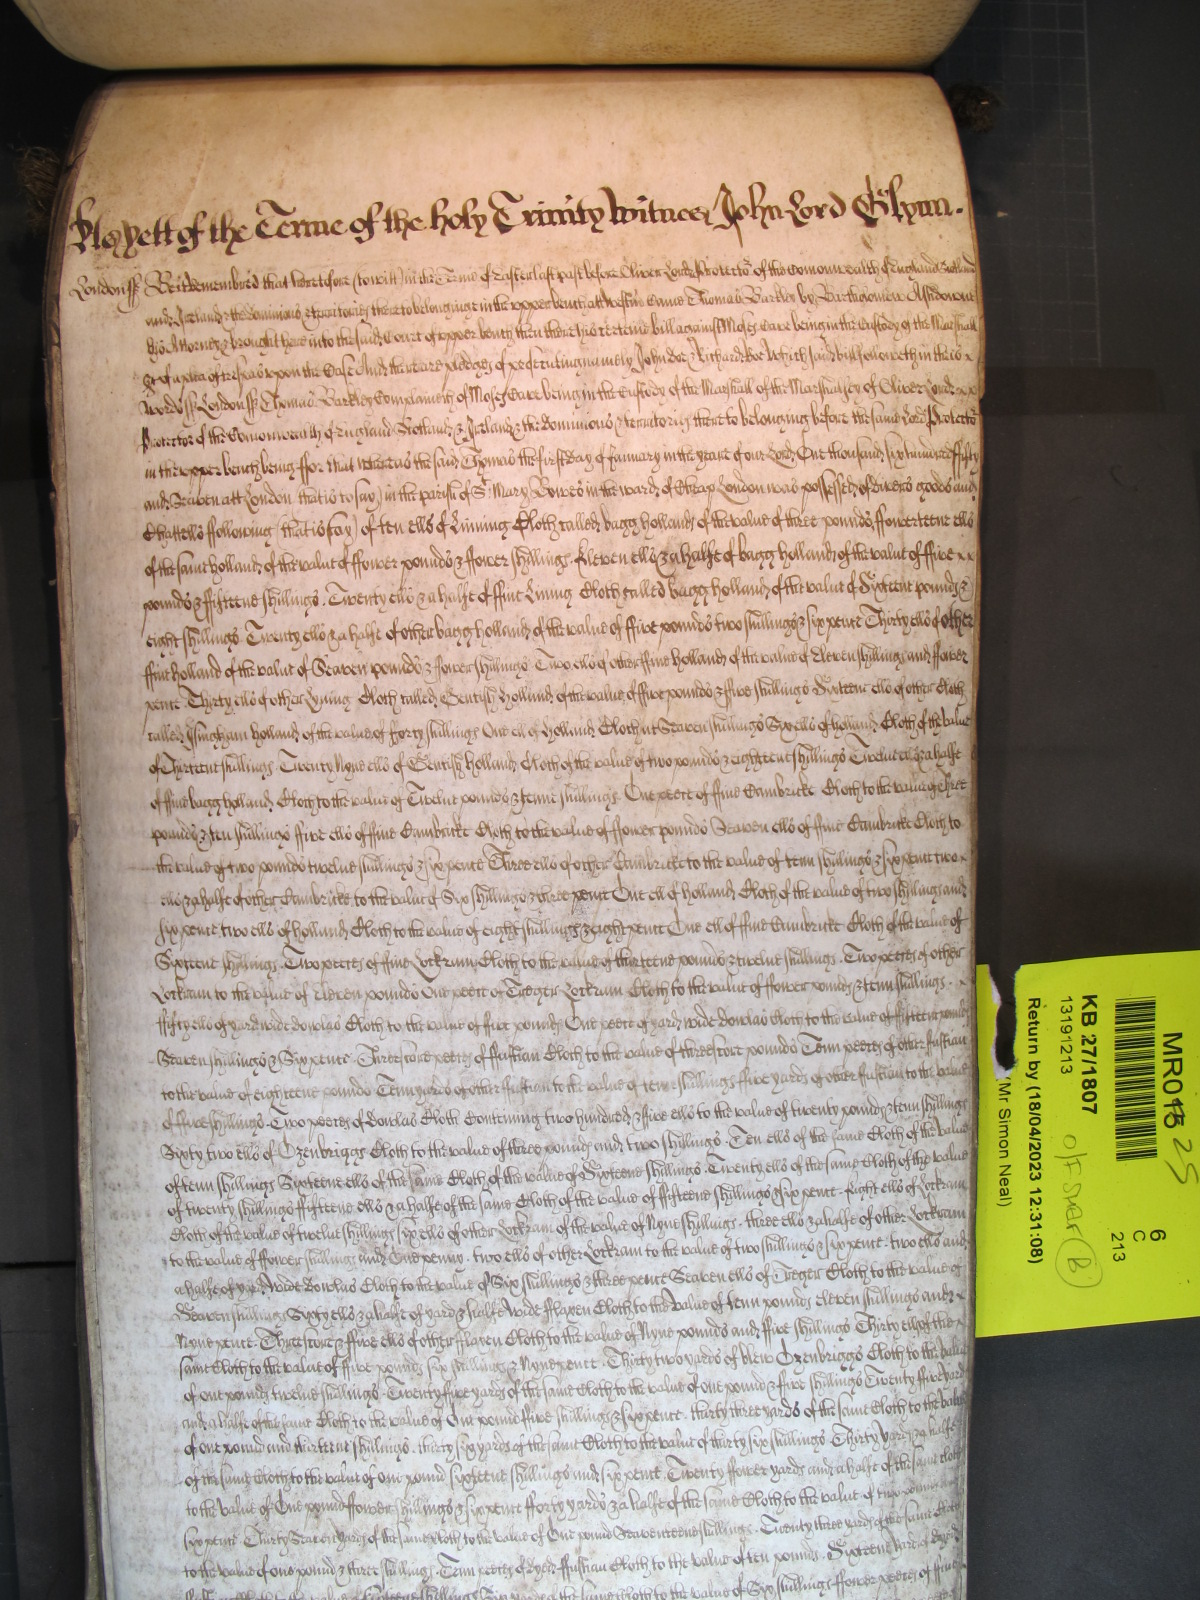 Pleas yett of the Terme of the holy Trinity Witnes John Lord Glynn.
London ss Be it Remembred that heretofore (to witt) in the Terme of Easter last past before Oliver Lord Protector of the Comonwealth of England Scotland
and Ireland & the dominions & territories thereto belonginge in the upper bench att Westm̃ Came Thomas Barkley by Bartholomew Ashdowne
his Attorney & brought here into the said Court of upper bench then there his certeine bill against Moses Care being in the Custody of the Marshall
&c of a plea of trespas upon the Case And there are pledges of prosecuting namely John Doe & Richard Roe Which said bill followeth in theis
words ss London ss Thomas Barkley Complaineth of Moses Care being in the Custody of the Marshall of the Marshalsey of Oliver Lord
Protector of the Comonwealth of England Scotland & Ireland & the dominions & territories there to belonging before the same Lord Protector
in the upper bench being ffor that whereas the said Thomas the first day of January in the yeare of our Lord One thousand six hundred fifty
and Seaven att London that is to say in the parish of St Mary Bowes in the ward of Cheap London was possessed of divers goods and
Chattells following (that is to say) of ten ells of Linning Cloth called bagg holland of the value of three pounds ffowerteene ells
of the same holland of the value of ffower pounds & ffower shillings. Eleven ells & a halfe of bagg holland of the value of ffive
pounds & ffifteene shillings. Twenty ells & a halfe of ffine Lining Cloth called bagg holland of the value of Sixteene pounds &
eight shillings Twenty ells & a halfe of other bagg holland of the value of ffive pounds two shillings & six pence Thirty ells of other
ffine holland of the value of Seaven pounds & ffower shillings Two ells of other ffine holland of the value of eleven shillings and ffower
pence Thirty ells of other Lyning Cloth called Gentish holland of the value of ffive pounds & ffive shillings Sixteene ells of other Cloth
called Isingham holland of the value of fforty shillings One ell of holland Cloth att Seaven shillings Six ells of holland Cloth of the value
of Thirteene shillings. Twenty Nyne ells of Gentish holland Cloth of the value of two pounds & eighteene shillings Twelve ells & a halfe
of ffine bagg holland Cloth to the value of Twelve pounds & tenne shillings. One peece of ffine Cambricke Cloth to the value of three
pounds & ten shillings ffive ells of ffine Cambricke Cloth to the value of ffower pounds Seaven ells of ffine Cambricke Cloth to
the value of two pounds twelve shillings & six pence Three ells of other Cambricke to the value of tenn shillings & six pence two
ells & a halfe of other Cambricke to the value of Six shillings & three pence One ell of holland Cloth of the value of two shillings and
six pence two ells of holland Cloth to the value of eight shillings & eight pence One ell of ffine Cambricke Cloth of the value of
Sixteene shillings. Two peeces of ffine Lockram Cloth to the value of thirteene pounds & twelve shillings. Two peeces of other
Lockram to the value of eleven pounds One peece of Treger Lockram Cloth to the value of ffower pounds & tenn shillings.
ffifty ells of yard wide dowlas Cloth to the value of five pounds One peece of yard wide dowlas Cloth to the value of ffifteene pounds
Seaven shillings & Six pence. Threescore peeces of ffustian Cloth to the value of threescore pounds Tenn peeces of other fustian
to the value of eighteene pounds Tenn yards of other fustian to the value of tenn shillings ffive yards of other fustian to the value
of ffive shillings. Two peeces of dowlas Cloth Conteining two hundred & ffive ells to the value of twenty pounds & tenn shillings
Sixty two ells of Ozenbriggs Cloth to the value of three pounds and two shillings. Ten ells of the same Cloth of the value
of tenn shillings Sixteene ells of the same Cloth of the value of Sixteene shillings. Twenty ells of the same Cloth of the value
of twenty shillings ffifteene ells & a halfe of the same Cloth of the value of ffifteene shillings & six pence. Eight ells of Lockram
Cloth of the value of twelve shillings six ells of other Lockram of the value of Nyne shillings. three ells & a halfe of other Lockram
to the value of ffower shillings and One penny. two ells of other Lockram to the value of two shillings & six pence. two ells and
a halfe of yard wide Dowlas Cloth to the value of Six shillings & three pence Seaven ells of Treger Cloth to the value of
Seaven shillings Sixty ells & a halfe of yard & halfe wide fflaxen Cloth to the value of tenn pounds eleven shillings and
Nyne pence. Threescore & ffive ells of other fflaxen Cloth to the value of Nyne pounds and ffive shillings Thirty ells of the
same Cloth to the value of ffive pounds six shillings & Nyne pence. Thirty two yards of blew Ozenbriggs Cloth to the value
of one pound twelve shillings. Twenty ffive yards of the same Cloth to the value of one pound & ffive shillings Twenty ffive yards
and a halfe of the same Cloth to the value of One pound ffive shillings & six pence. thirty three yards of the same Cloth to the value
of one pound and thirteene shillings. thirty six yards of the same Cloth to the value of thirty six shillings. Thirty yards & a halfe
of the same Cloth to the value of one pound sixteene shillings and six pence. Twenty ffower yards and a halfe of the same cloth
to the value of One pound ffower shillings & six pence fforty yards & a halfe of the same Cloth to the value of two pounds
six pence. Thirty Seaven yards of the same Cloth to the value of One pound Seaventeene shillings. Twenty three yards of the same Cloth
to the value of one pound & three shillings. Tenn peeces of dyed ffustian Cloth to the value of ten pounds. Sixteene yards of dyed
the same Cloth to the value of Six shillings ffower peeces of ffine
MR013
25
6
C
213
KB 27/1807
13191213
O/F SMAF (B)
Return by (18/04/2023 12:31:08)
(Mr Simon Neal)